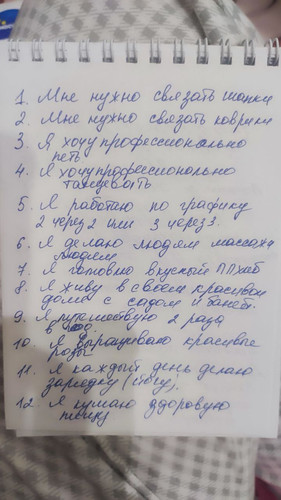 1. Мне нужно связать шапки
2. Мне нужно связать коврики
3. Я хочу профессионально
петь
4. Я хочу профессионально
танцевать
5. Я работаю по графику
2 через 2 или 3 через 3.
6. Я делаю людям массажа
людям
7. Я готовлю вкусный
8. Я живу в своём красивом
доме с садом и баней.
9. Я путешествую 2 раза
в год.
10. Я выращиваю красивые
розы
11. Я каждый день делаю
зарядку
12. Я кушаю здоровую
пищу